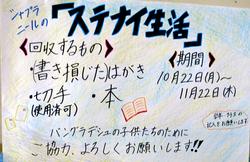 シャプラ
ニールの
「ステナイ生活」
〈回収するもの〉
・書き損じたはがき
・切手
(使用済可)
・本
〈期間〉
10月22日(月)〜
11月22日(木)
バングラデシュの子供たちのために
ご協力、よろしくお願いします!!